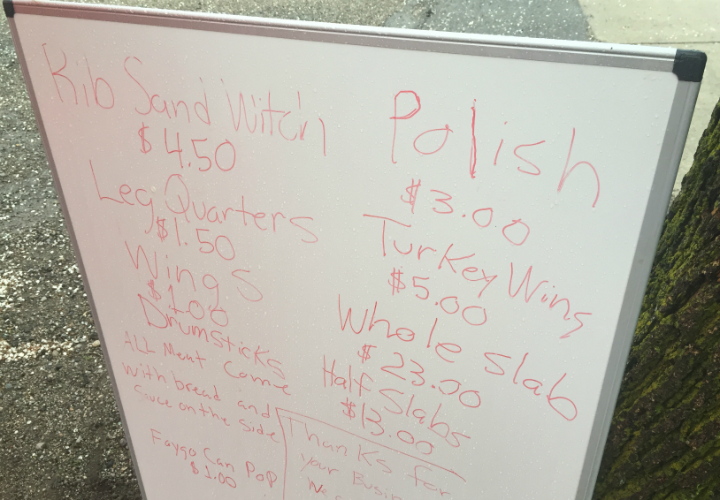 Rib Sand Witch
$4.50
Leg Quarters
$1.50
Wings
$1.00
Drumsticks
ALL Meat Come
with bread and
Suce on the Side
Faygo Can Pop
$1.00
Polish
$3.00
Turkey Wing
$5.00
Whole slab
$23.00
Half Slabs
$13.00
Thanks for
your Busin
We